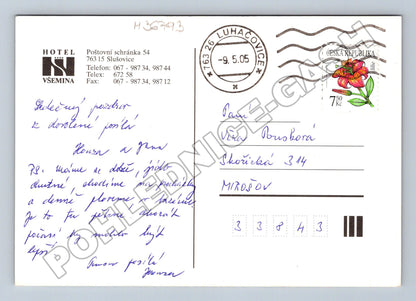 M36793
HOTEL
VŠEMINA
Poštovní schránka 54
763 15 Slušovice
Telefon: 067 - 987 34, 987 44
Telex: 672 58
Fax: 067 - 341, 987 12
763 26 LUHAČOVICE
-9.5.05
ČESKÁ REPUBLIKA
7,50 Kč
Srdečný pozdrav
z dovolené posílá
Honza a Jana
P.S. Máme se dobře, jídlo
chutné, chodíme na procházky
a denně plaveme
Je to tu pěkné
počasí by mohlo být
lepší.
posílá
Honza
Paní
Věra
Skořická 314
MIROŠOV
33843
POHLEDNICE-GASH